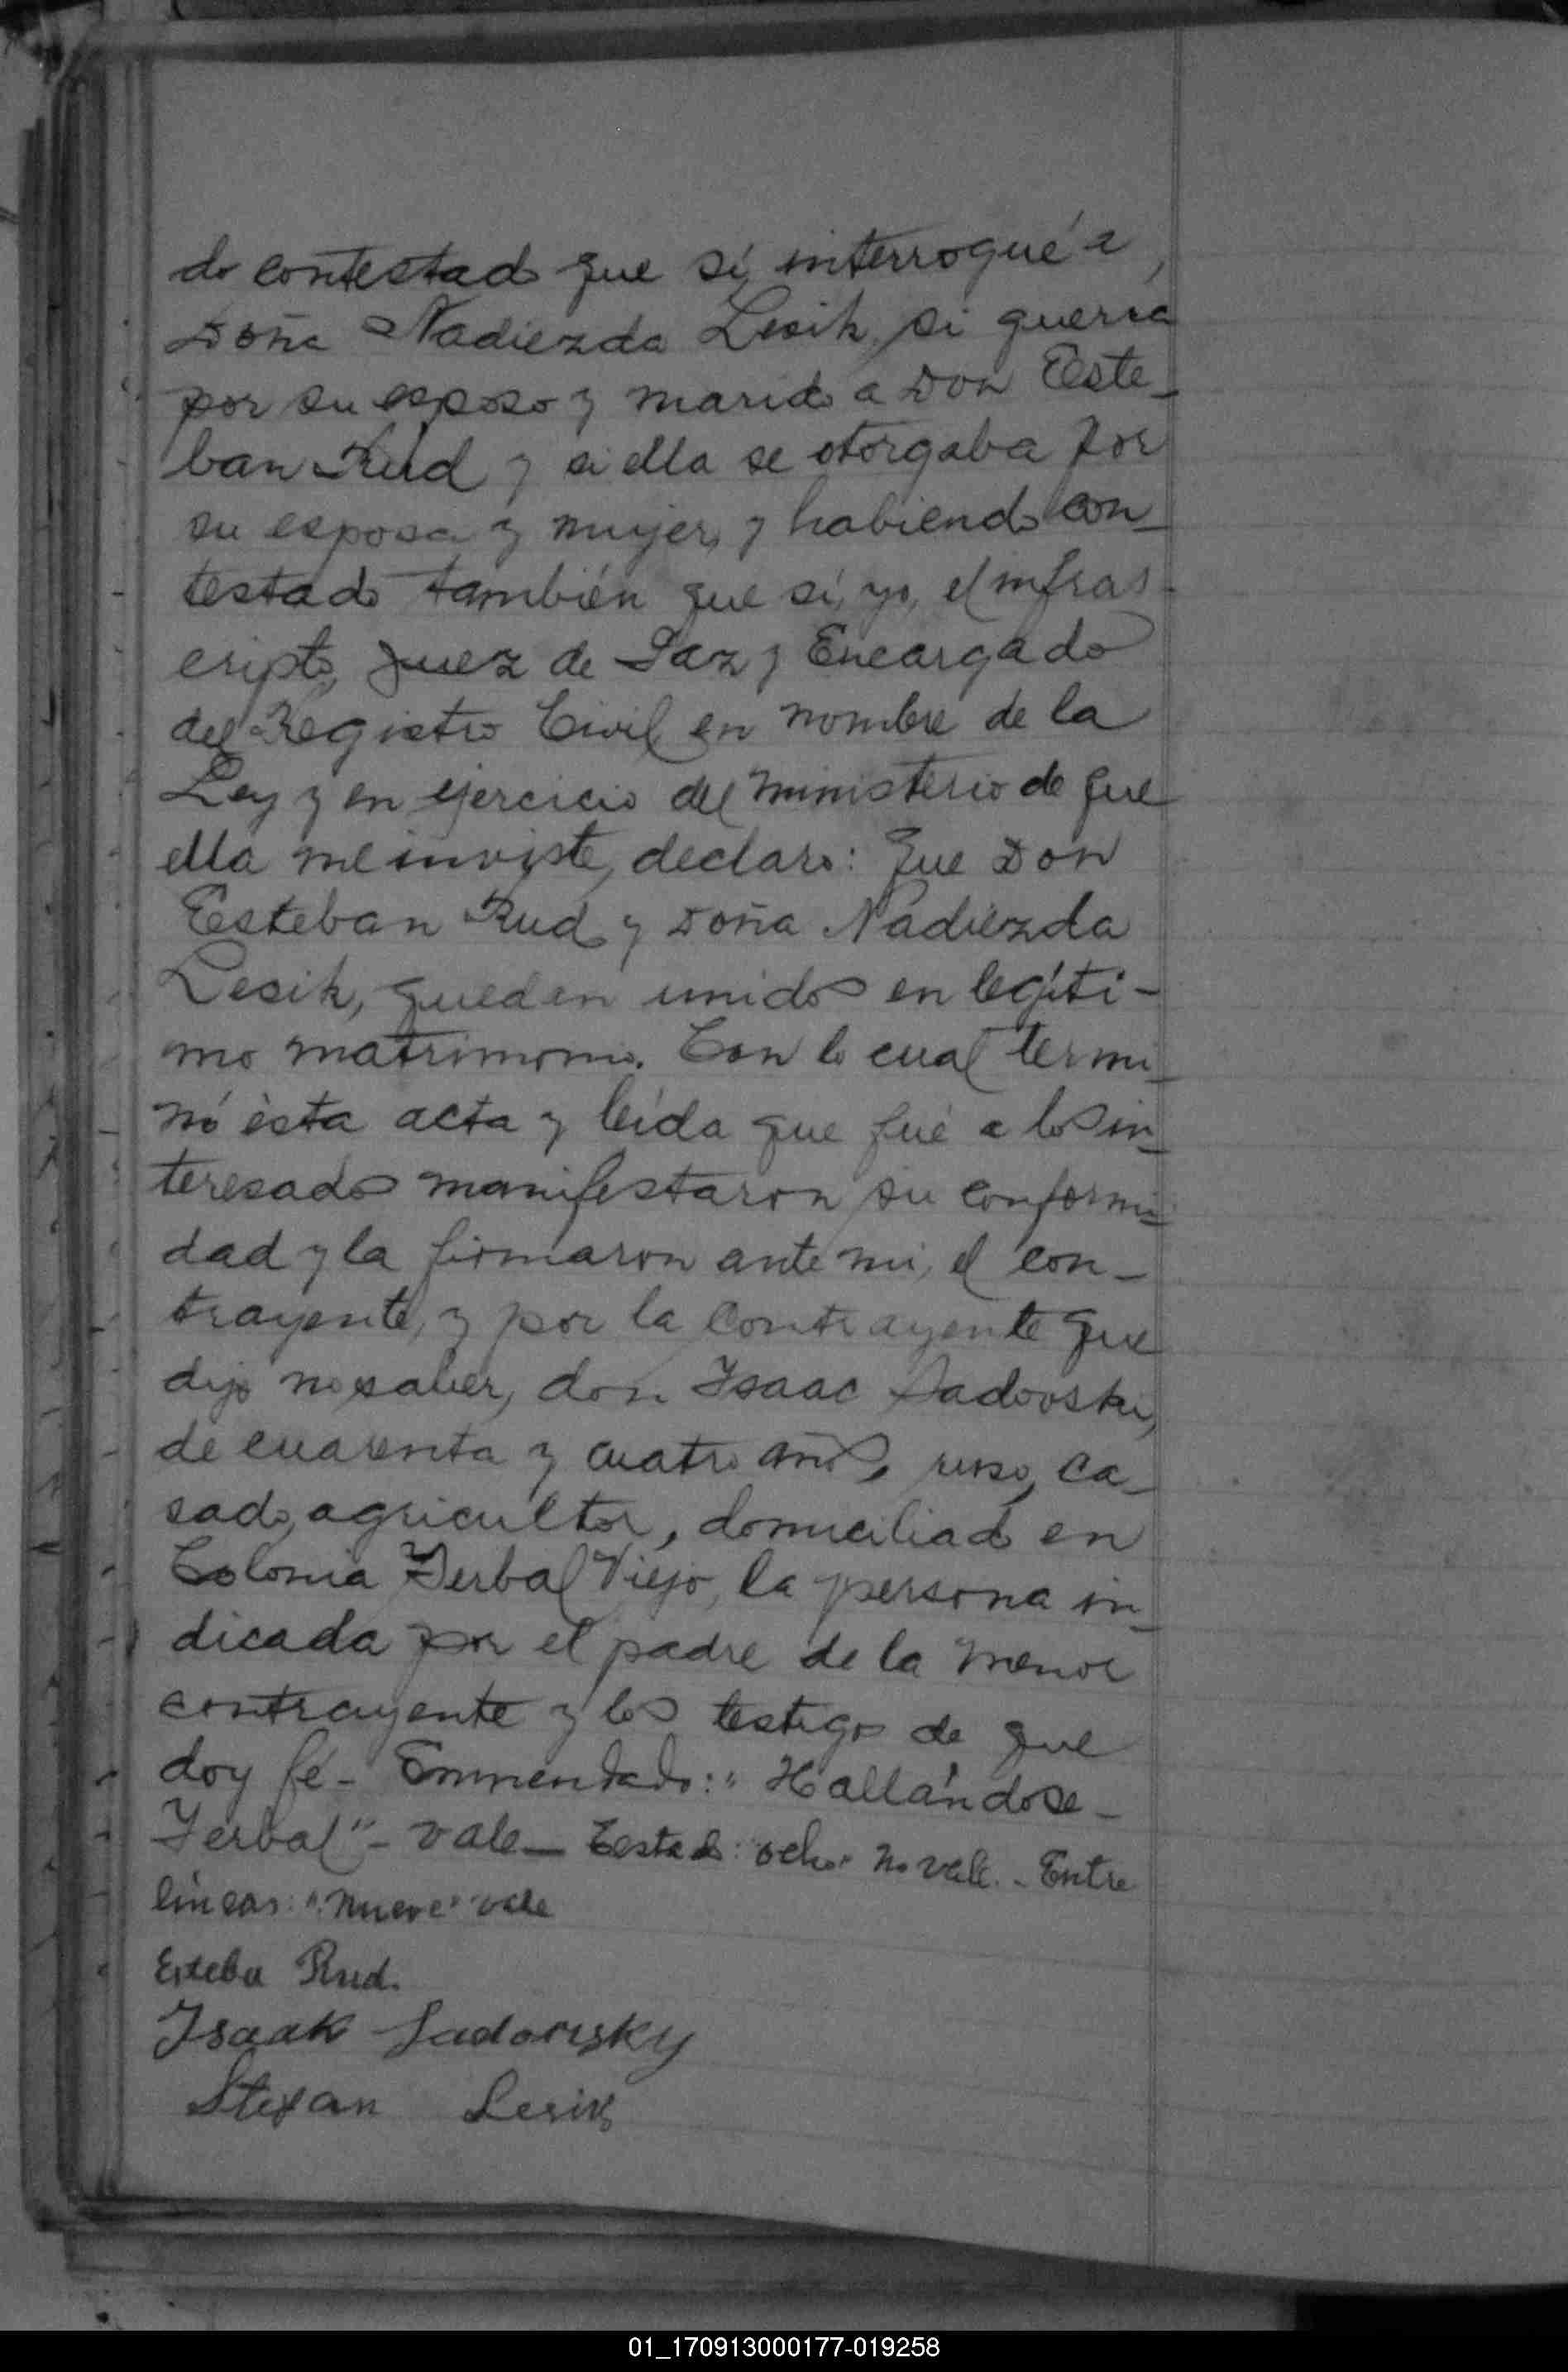 do contestado que sí, interrogué a
Doña Nadiezda Lesik, si quería
por su esposo y marido a Don Este-
ban Rud y si ella se otorgaba por
su esposa y mujer, y habiendo con-
testado también que sí, yo, el infras-
cripto, Juez de Paz y Encargado
del Registro Civil, en nombre de la
Ley y en ejercicio del ministerio de que
ella me inviste, declaro: Que Don
Esteban Rud y Doña Nadiezda
Lesik, quedan unidos en legíti-
mo matrimonio. Con lo cual termi-
nó ésta acta y leída que fué a los in-
teresados manifestaron su conformi-
dad y la firmaron ante mi, el con-
trayente, y por la contrayente que
dijo no saber, don Isaac Sadovski,
de cuarenta y cuatro años, ruso, ca-
sado, agricultor, domiciliado en
Colonia Yerbal Viejo, la persona in-
dicada por el padre de la menor
contrayente y los testigos de que
doy fé- Enmendado: "Hallándose-
Yerbal"- vale- Testado: "ocho" no vale.- Entre
líneas: "nueve" vale
Esteba Rud.
Isaak Sadowsky
Stefan Lesik
01_170913000177-019258